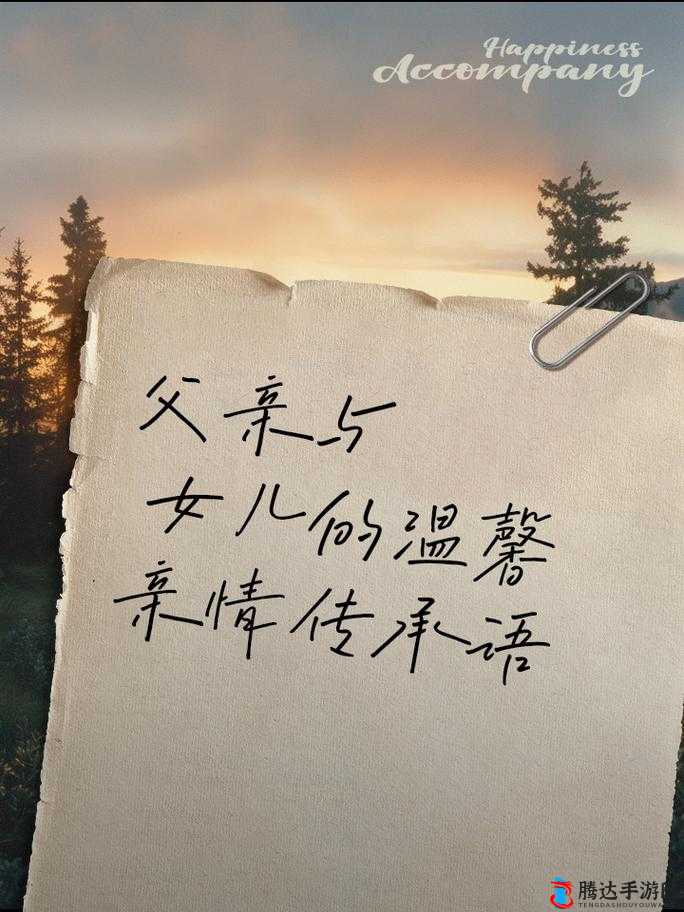 Happiness
Accompany
父亲与
女儿的温馨
亲情传承语
腾达手游
TENGDASHOUYOUWA